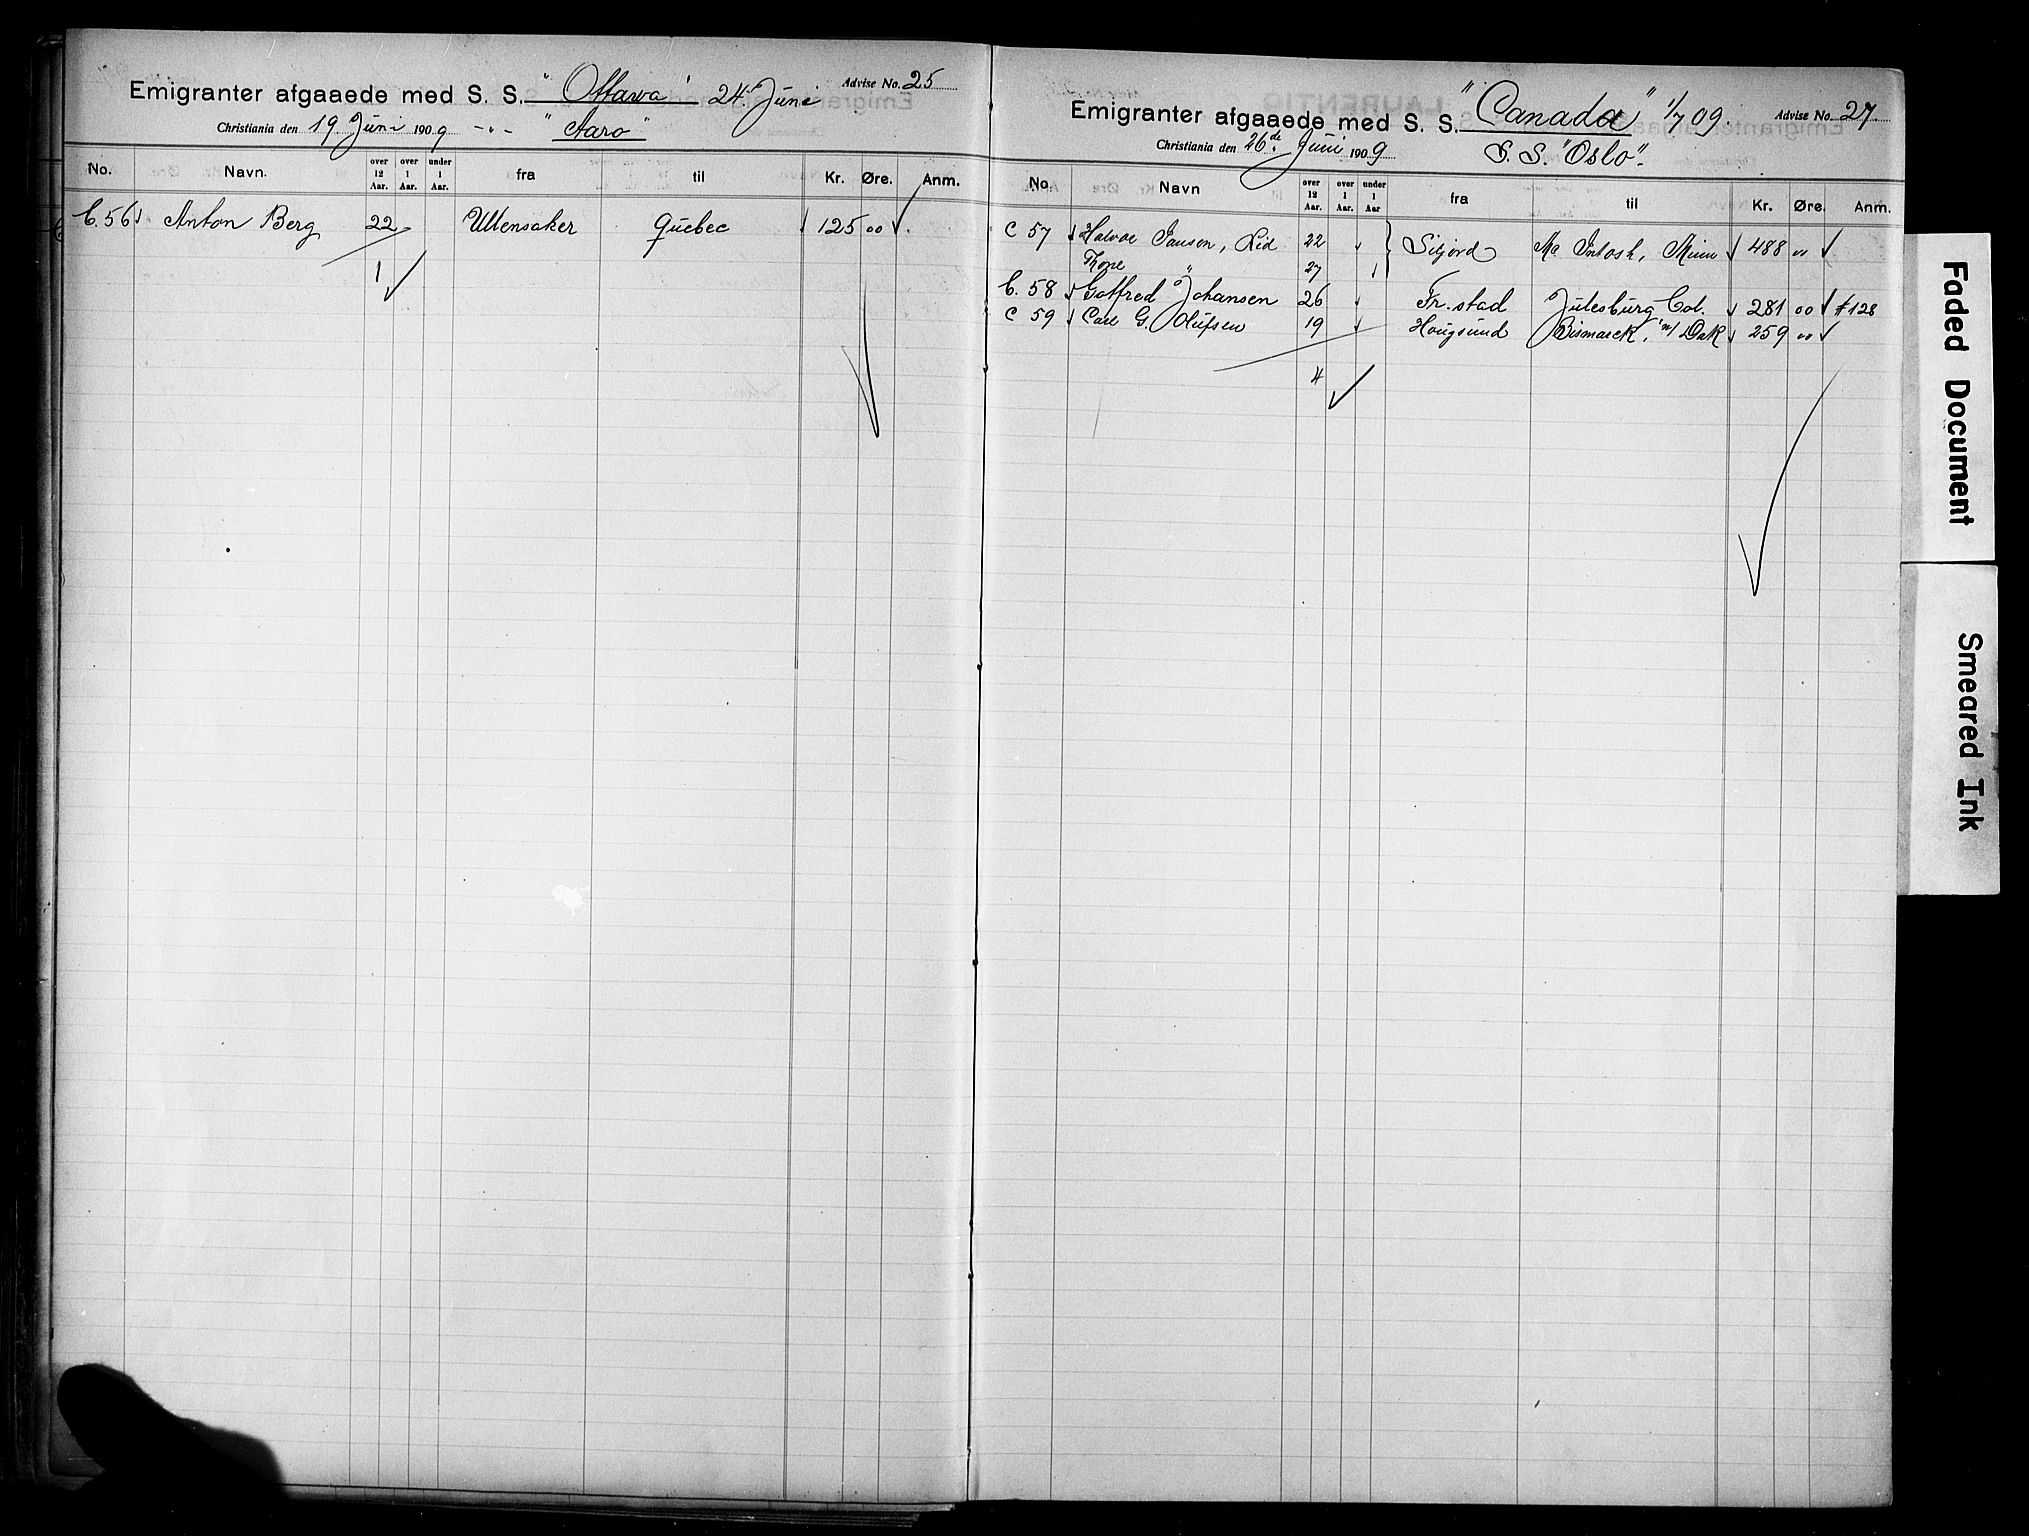 Emigranter afgaaede med S. S. "Ottawa" 24. Juni Advise No. 25
Christiania den 19 Juni 1909 -"- "Aaro"
No. Navn. over 12 Aar. over 1 Aar. under 1 Aar. fra til Kr. Øre. Anm.
C. 56 Anton Berg 22 Ullensaker Quebec 125 00
1
Emigranter afgaaede med S. S. "Canada" 1/7 09. Advise No. 27
Christiania den 26de Juni 1909 S. S. "Oslo".
No. Navn over 12 Aar. over 1 Aar. under 1 Aar fra til Kr. Øre. Anm.
C 57 Halvor Jansen, Lid 22 Siljord Mc Intosh, Minn 488 00
Tone " 27
C. 58 Gotfred Johansen 26 Fr. stad Julesburg Col. 281 00 # 128
C 59 Carl G. Olufsen 19 Hougsund Bismarck, N/ Dak 259 00
4
Faded Document
Smeared Ink